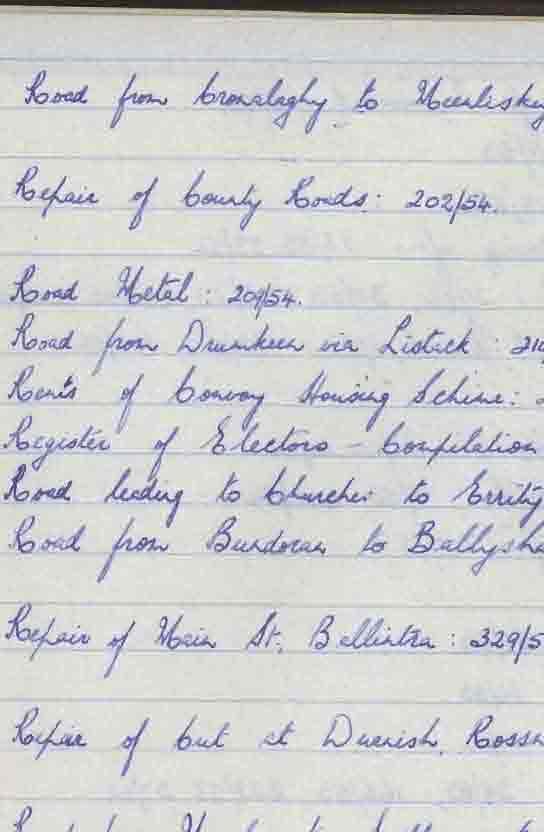 Road from Cronalaghy to Meenlisky
Repair of County Roads: 202/54.
Road Metal: 209/54.
Road from Drumkeen via Listack: 21
Rents of Convoy Housing Scheme:
Register of Electors – Compilation
Road leading to Churches to Errity
Road from Bundoran to Ballysha
Repair of Main St. Ballintra: 329/5
Repair of Cut at Duenish, Ross